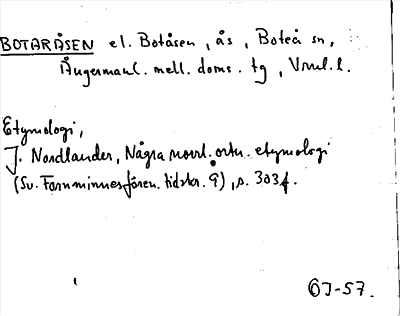 BOTARÅSEN el. Botåsen, ås, Boteå sn,
Ångermanl. mell. doms. tg, Vnrl. l.
Etymologi,
J. Nordlander, Några norrl. ortn. etymologi
(Sv. Fornminnesfören. tidskr. 9), s. 303 f.
OJ-57.